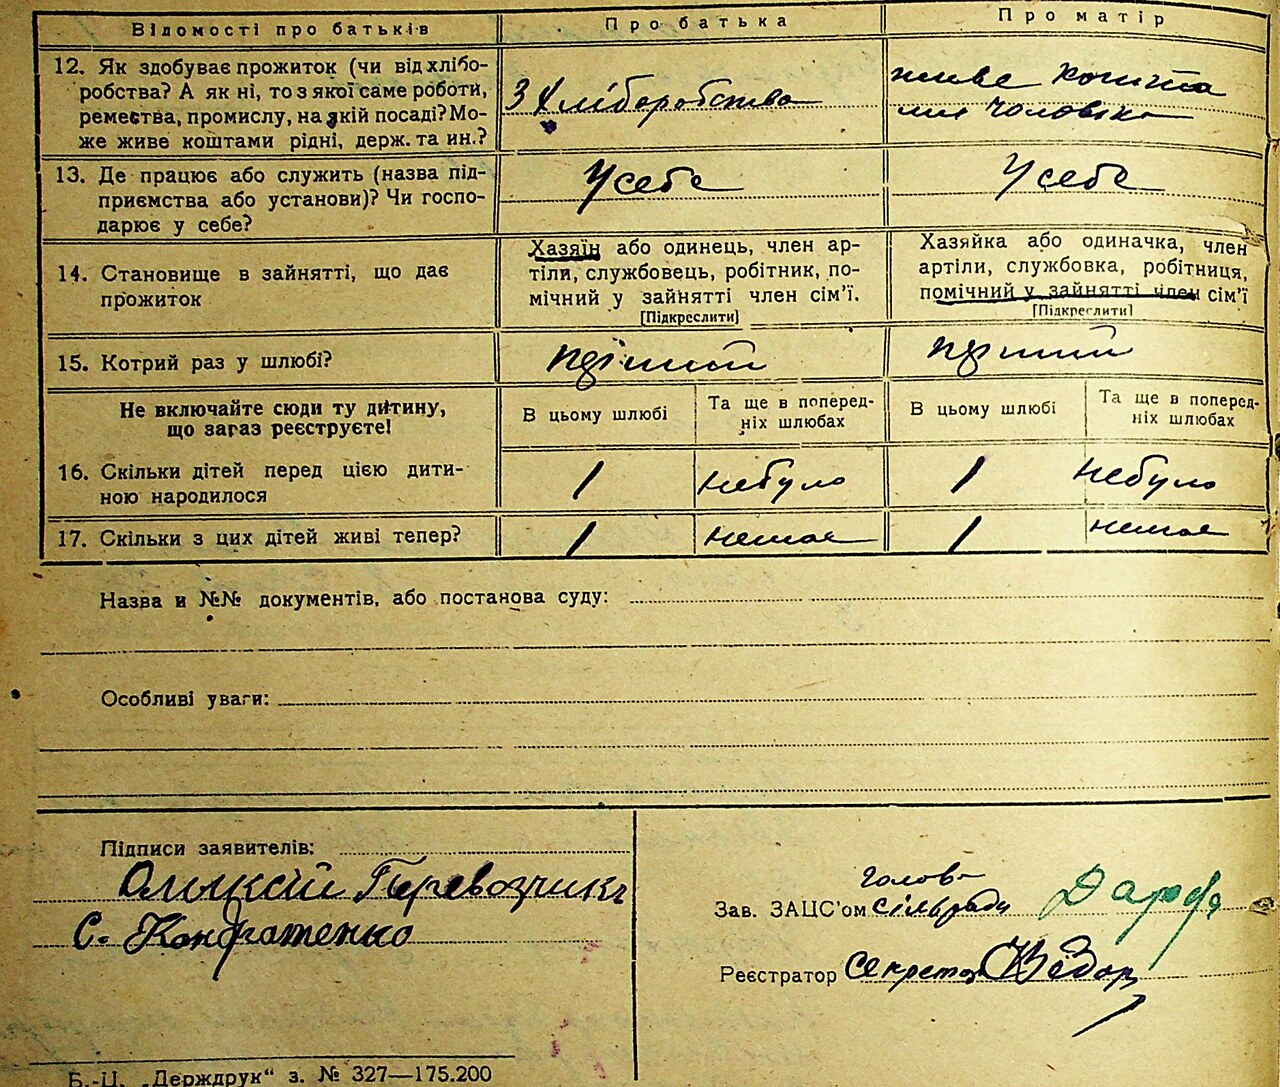 Відомості про батьків
Про батька
Про матір
12. Як здобуває прожиток (чи від хлібо-
робства? А як ні, то з якої саме роботи,
ремества, промислу, на якій посаді? Мо-
же живе коштами рідні, держ. та ин.?
З хліборобства
живе кошта
ми чоловіка
13. Де працює або служить (назва під-
приємства або установи)? Чи госпо-
дарює у себе?
У себе
У себе
14. Становище в зайнятті, що дає
прожиток
Хазяїн або одинець, член ар-
тіли, службовець, робітник, по-
мічний у зайнятті член сім'ї.
[Підкреслити]
Хазяйка або одиначка, член
артіли, службовка, робітниця,
помічний у зайнятті член сім'ї
[Підкреслити]
15. Котрий раз у шлюбі?
Не включайте сюди ту дитину,
що загаз реєструєте!
В цьому шлюбі
Та ще в поперед-
ніх шлюбах
В цьому шлюбі
Та ще в поперед-
ніх шлюбах
16. Скільки дітей перед цією дити-
ною народилося
1
небуло
1
небуло
17. Скільки з цих дітей живі тепер?
1
немає
1
немає
Назва и №№ документів, або постанова суду:
Особливі уваги:
Підписи заявителів:
Перевозчик
С. Кондратенко
Голова
Зав. ЗАЦС'ом сільради
Реєстратор Секретар
Б.-Ц. „Держдрук“ з. № 327—175.200